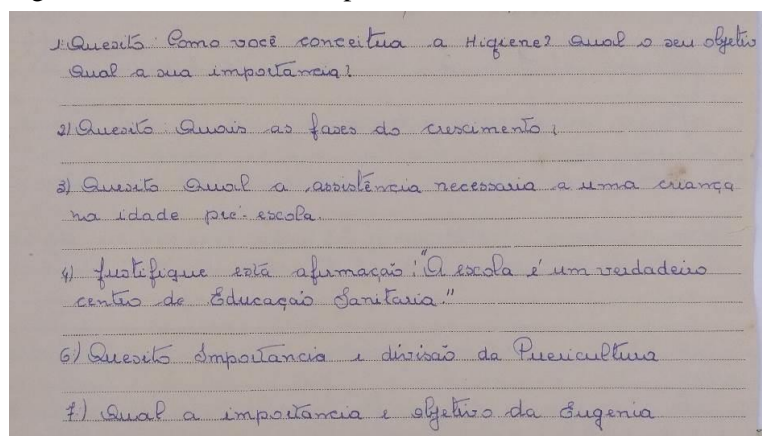 1º Quesito: Como você conceitua a Higiene? Qual o seu objetivo
Qual a sua importância?
2) Quesito: Quais as fases do crescimento?
3) Quesito Qual a assistência necessaria a uma criança
na idade pré-escola.
4) Justifique está afirmação: "A escola é um verdadeiro
centro de Educação Sanitaria."
6) Quesito Importância e divisão da Puericultura
7) Qual a importância e objetivo da Eugenia